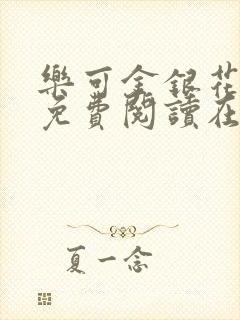 樂可金銀花
免費閱讀在
夏一念